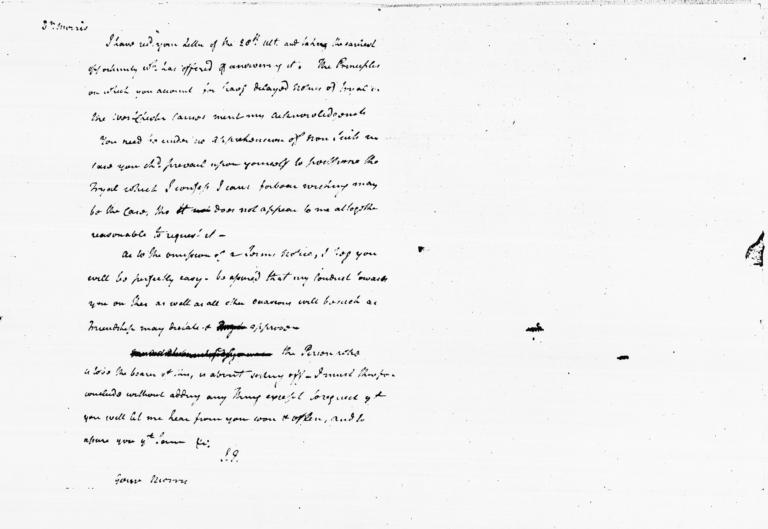 Dr. Morris
I have recd. your Letter of the 20th. Ult. and taking the earliest
opportunity wh. has offered of answering it. The Principles
on which you account for havg delayed Notice of Tryal in
the Westchester Causes merit my acknowledgments
You need be under no apprehension of Non Suits in
case you shd. prevail upon yourself to postpone the
Tryal which I confess I cant forbear wishing may
be the Case, tho it does not appear to me altogether
reasonable to request it –
As to the omission of a Terms Notice, I beg you
will be perfectly easy – be assured that my Conduct towards
you on this as well as all other occasions will be such as
Friendship may dictate & approve –
the Person who
is to be the bearer of this, is about setting off – I must therefore
conclude without adding any Thing except to request yt
you will let me hear from you soon & often, and to
assure you yt I am &c.
J. J.
Gouvr Morris